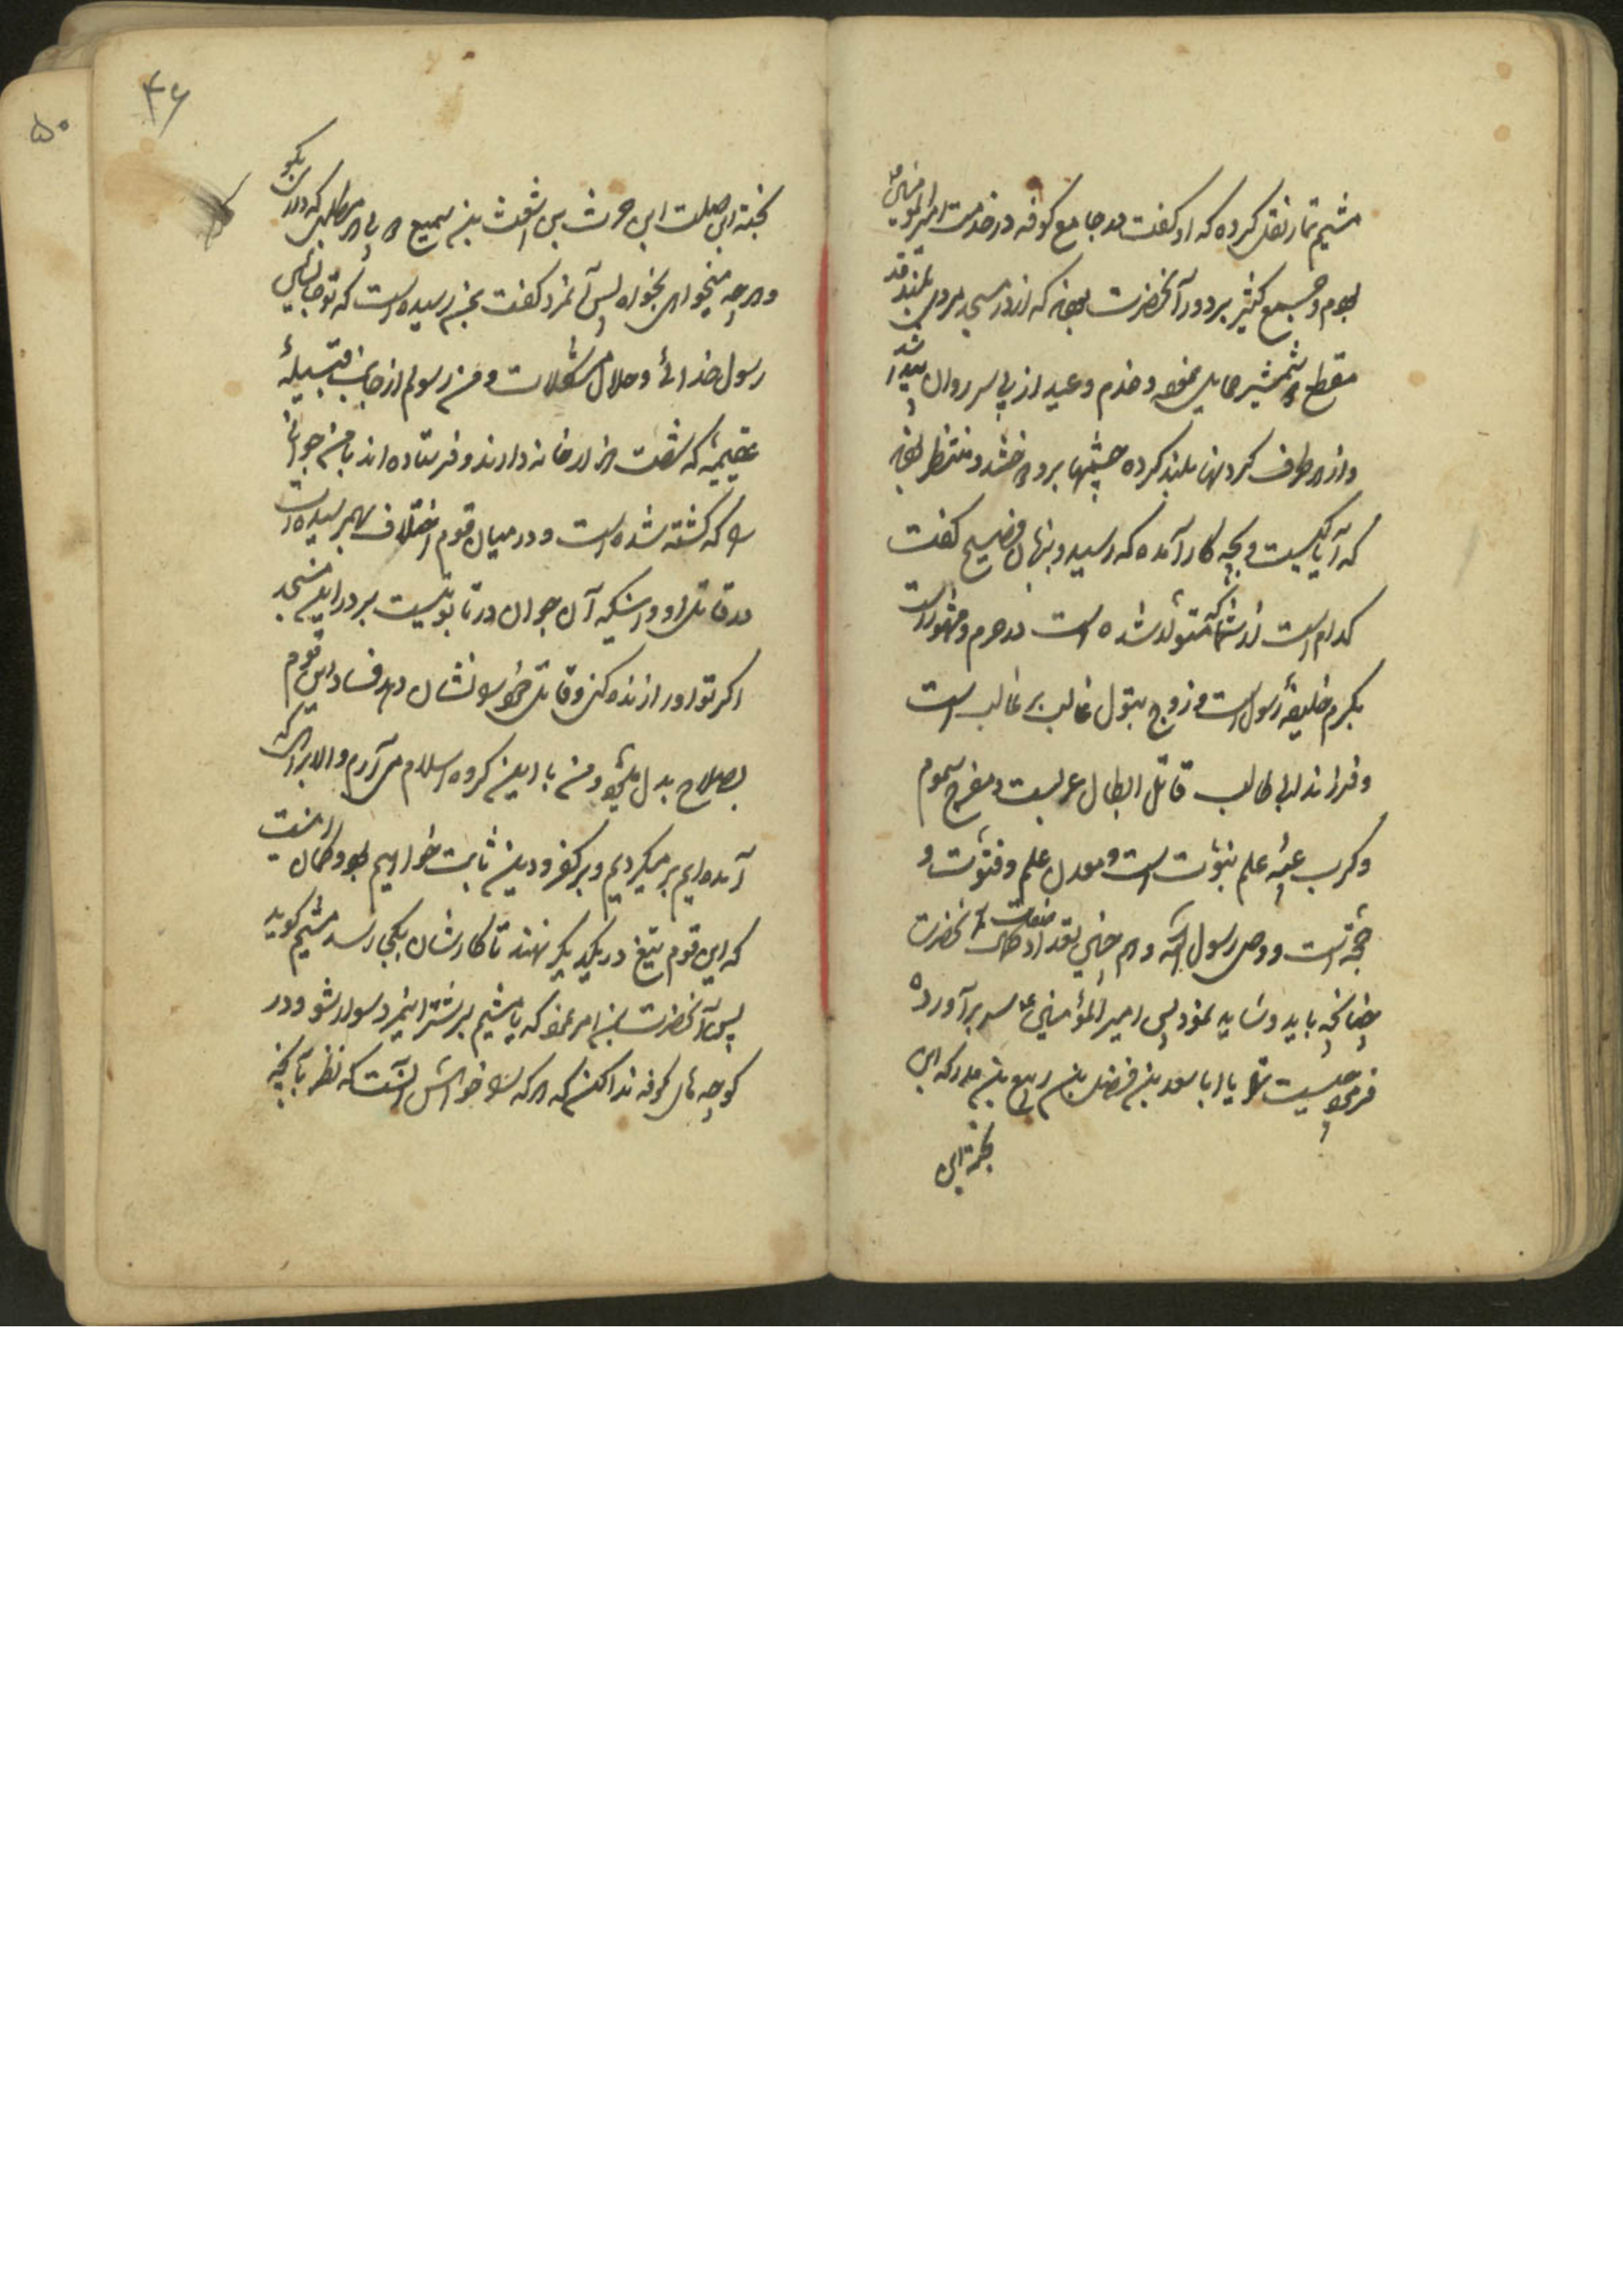 میثم تمار نقل کرده که او گفت در جامع کوفه در خدمت امیرالمؤمنین ع
بودم و جمع کثیر بر دور آنحضرت بودند که از در مسجد مردی بلند قد
مقطع شمشیر حمایل نموده و خدم و عبید از پی سر روان پیدا شد
و از هر طرف گردنها بلند کرده چشمها بر وی دوختند و منتظر بودند
که آیا کیست و بچه کار آمده که رسید و بزبان فصیح گفت
کدام است از شما که متولد شده است در حرم و مشهور است
بکرم خلیفهٔ رسول است و زوج بتول غالب بر غالب است
و فرزند ابی طالب قاتل ابطال عربست و مفرج هموم
و کرب عیبه علم نبوت است و معدن علم و فتوت و
حجة است و وصی رسول الله و همچنین تعداد صفات کمال آنحضرت
چنانچه باید و شاید نمود پس امیرالمؤمنین ع سر برآورده
فرمود چیست ترا یا ابا سعد بن فضل بن ربیع بن مدرکه ابن
نجبة ابن
۴۶
۵۰
نجبة ابن صلت ابن حرث بن اشعث بن سمیع هر مطلبی که داری بگو
و هرچه میخواهی بخواه پس آنمرد گفت بمن رسیده است که تو جانشین
رسول خدائی و حلال مشکلات و من رسولم از جانب قبیلهٔ
عقیمه که شصت هزار خانه دارند و فرستاده‌اند با من جوانی
را که کشته شده است و در میان قوم اختلاف بهم رسیده است
در قاتل او و اینکه آن جوان در تابوتیست بر در این مسجد
اگر تو او را زنده کنی و قاتل خود را نشان دهد فساد این قوم
بصلاح بدل میشود و من با این گروه اسلام می‌آرم و الا براهی که
آمده‌ایم برمیگردیم و بر کفر و دین ثابت خواهیم بود و گمان هست
که این قوم تیغ در یکدیگر نهند تا کارشان بکجا رسد میثم گوید
پس آنحضرت بمن امر نمود که یا میثم بر شتر اینمرد سوار شو و در
کوچه‌های کوفه ندا کن که هر که را خواهش آنست که نظر بآنچه